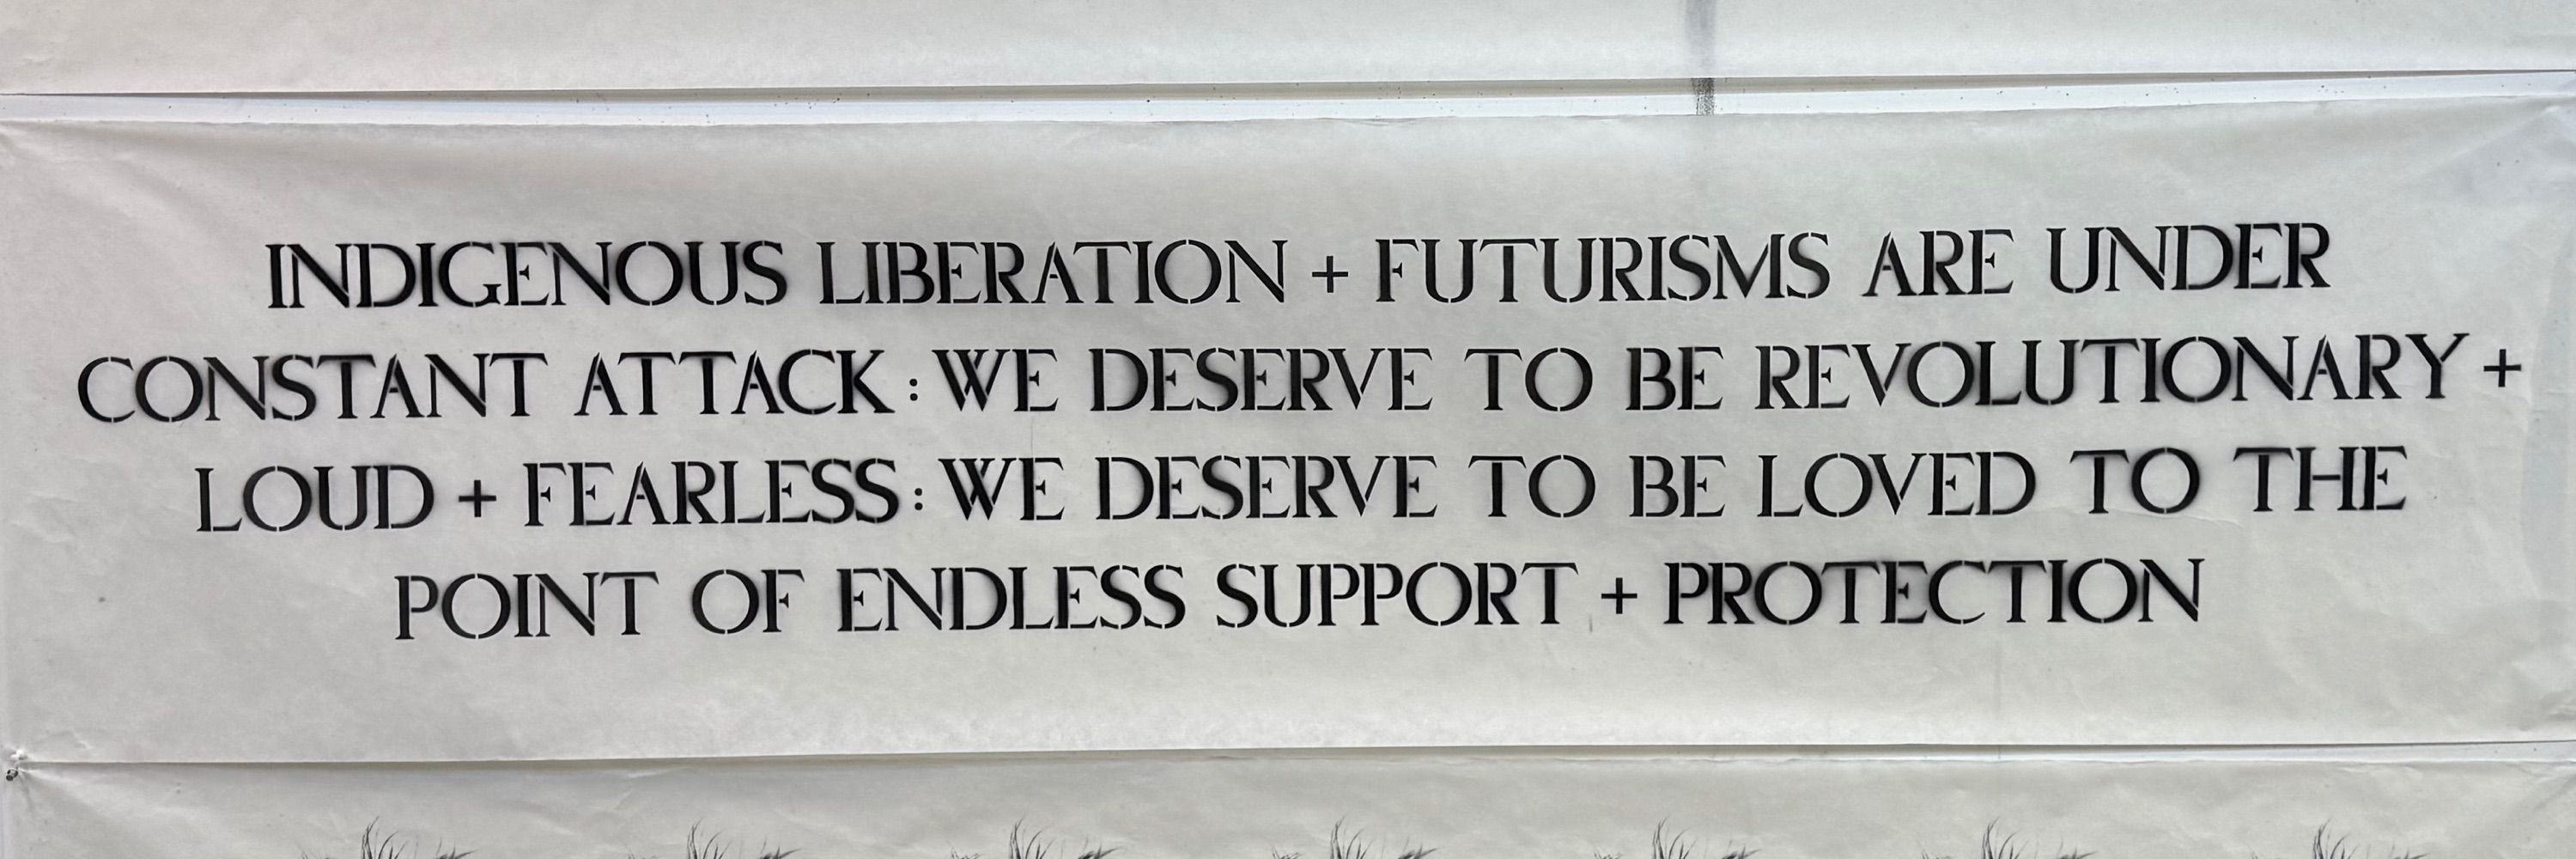 INDIGENOUS LIBERATION + FUTURISMS ARE UNDER
CONSTANT ATTACK : WE DESERVE TO BE REVOLUTIONARY +
LOUD + FEARLESS : WE DESERVE TO BE LOVED TO THE
POINT OF ENDLESS SUPPORT + PROTECTION